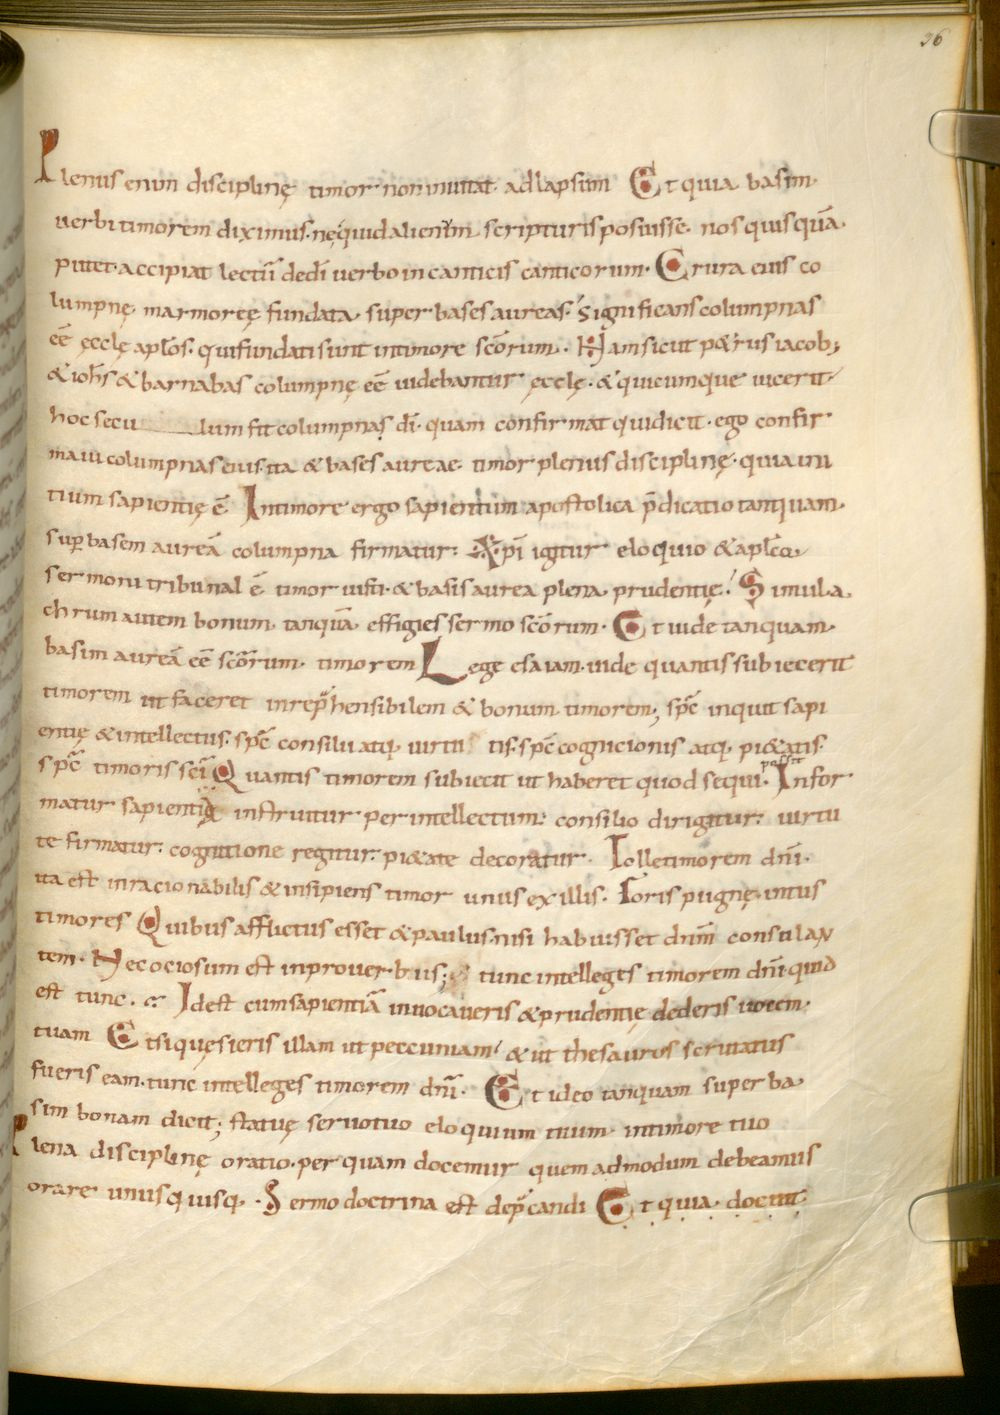 26
Plenus enim disciplinę timor non inuitat ad lapsum Et quia basim
uerbi timorem diximus. nequid alienum scripturis posuisse nos quisquā
putet. accipiat lectū dedī uerbo in canticis canticorum. Crura eius co
lumpnę marmoreę fundata super bases aureas. Significans columpnas
eē ęcclę apłos. qui fundati sunt in timore scōrum. Nam sicut p&rus iacob;
& ioħs & barnabas columpnę eē uidebantur ęcclę. & quicumque uicerit
hoc secu lum fit columpnas dī. quam confirmat qui dicit. ego confir
maui columpnas eius. ita & bases aureae timor plenus disciplinę. quia ini
tium sapientię ē. In timore ergo sapientium apostolica p̄dicatio tanquam
sup basem aureā columpna firmatur: Xp̄i igitur eloquio & apłico
sermoni tribunal ē timor iusti. & basis aurea plena prudentię. Simula
chrum autem bonum tanquā effigies sermo scōrum. Et uide tanquam
basim aureā eē scōrum timorem Lege esaiam. uide quantis subiecerit
timorem ut faceret inrep̄hensibilem & bonum timorem; sp̄c inquit sapi
entię & intellectus. sp̄c consilii atq; uirtu tis. sp̄c cognicionis atq; pi&atis.
sp̄c timoris scī Quantis timorem subiecit ut haberet quod sequi. possit Infor
matur sapientia instruitur per intellectum: consilio dirigitur: uirtu
te firmatur: cognitione regitur: pi&ate decoratur. Tolle timorem dnī.
ita est inracionabilis & insipiens timor unus ex illis. Foris pugnę. intus
timores Quibus afflictus esset & paulus. nisi habuisset dnm̄ consolan
tem. Nec ociosum est in prouerbiis; tunc intelleges timorem dnī. quid
est tunc. Id est cum sapientiā inuocaueris & prudentię dederis uocem
tuam Et si quęsieris illam ut peccuniam & ut thesauros scrutatus
fueris eam. tunc intelleges timorem dnī. Et ideo tanquam super ba
sim bonam dicit; statuę seruo tuo eloquium tuum in timore tuo
Plena disciplinę oratio. per quam docemur quemadmodum debeamus
orare unusquisq;. Sermo doctrina est dep̄candi Et quia docuit